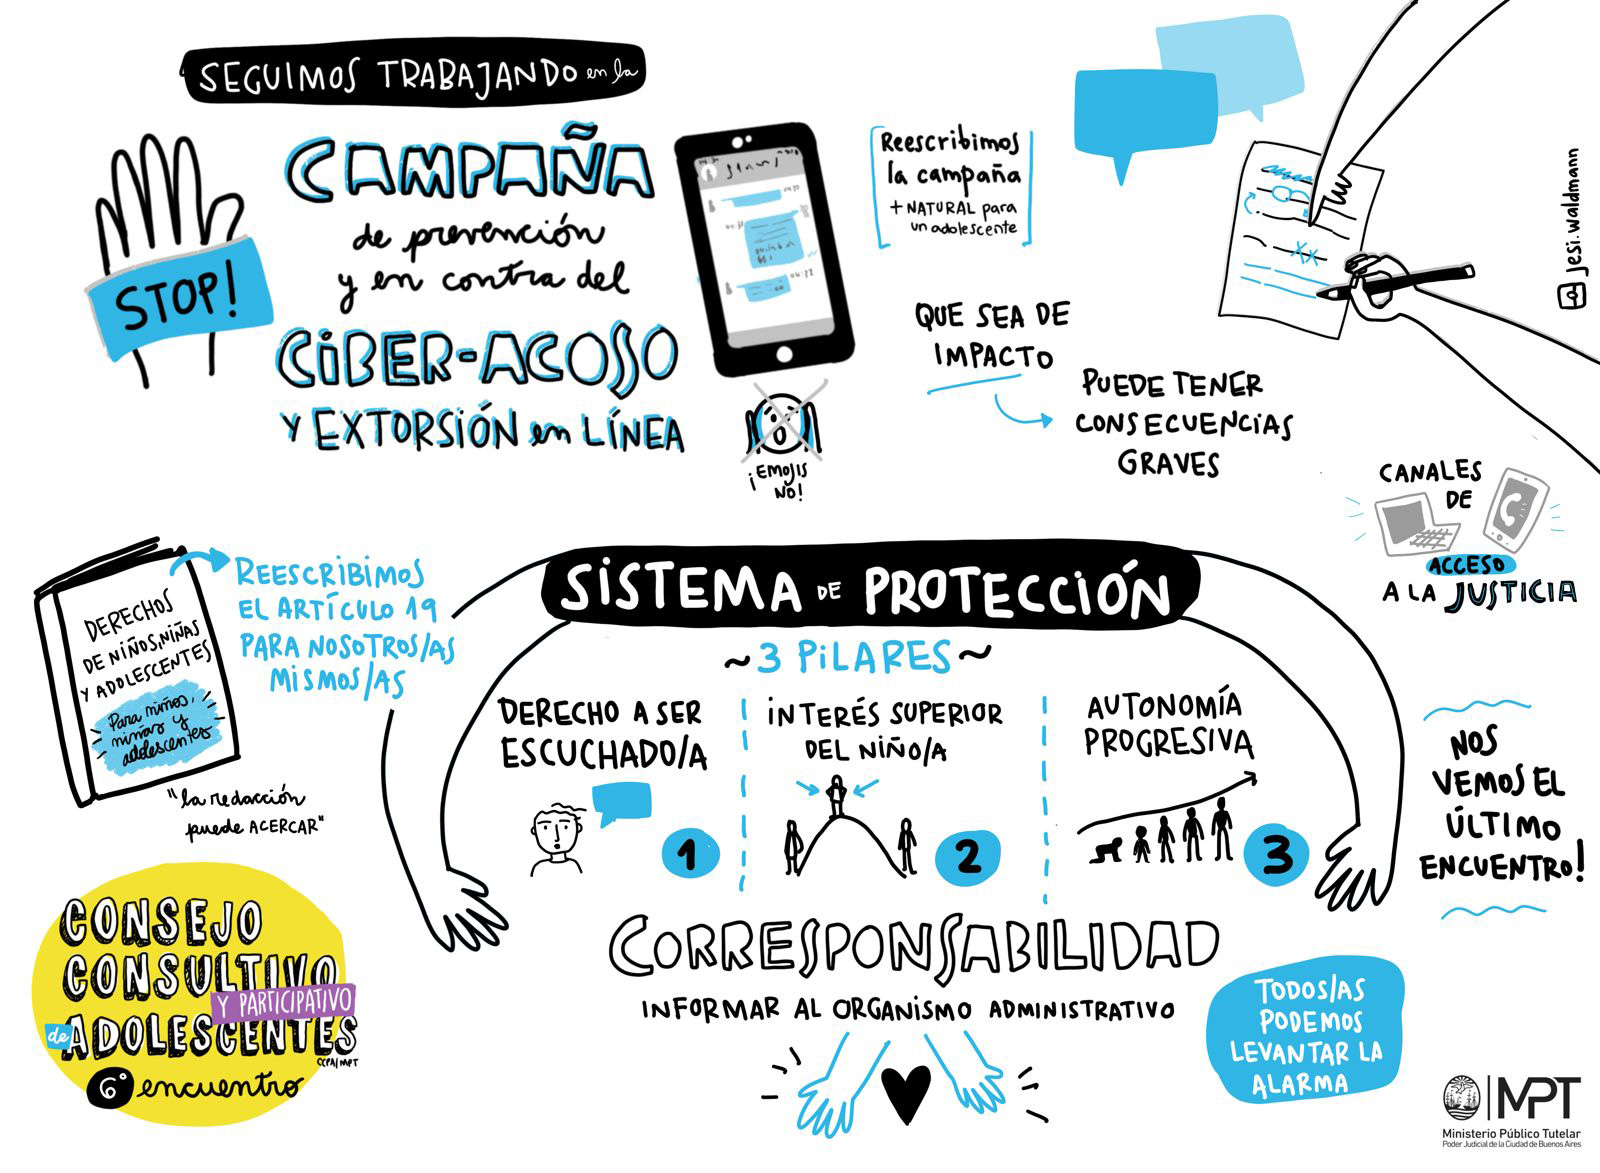 SEGUIMOS TRABAJANDO en la
CAMPAÑA
de prevención
y en contra del
CIBER-ACOSO
Y EXTORSIÓN en LÍNEA
STOP!
¡EMOJIS
NO!
Reescribimos
la campaña
+ NATURAL para
un adolescente
QUE SEA DE
IMPACTO
PUEDE TENER
CONSECUENCIAS
GRAVES
jesi.waldmann
CANALES
DE
ACCESO
A LA JUSTICIA
DERECHOS
DE NIÑOS, NIÑAS
Y ADOLESCENTES
Para niños,
niñas y
adolescentes
REESCRIBIMOS
EL ARTÍCULO 19
PARA NOSOTROS/AS
MISMOS/AS
"la redacción
puede ACERCAR"
SISTEMA DE PROTECCIÓN
~3 PILARES~
DERECHO A SER
ESCUCHADO/A
1
INTERÉS SUPERIOR
DEL NIÑO/A
2
AUTONOMÍA
PROGRESIVA
3
NOS
VEMOS EL
ÚLTIMO
ENCUENTRO!
CORRESPONSABILIDAD
INFORMAR AL ORGANISMO ADMINISTRATIVO
TODOS/AS
PODEMOS
LEVANTAR LA
ALARMA
CONSEJO
CONSULTIVO
Y PARTICIPATIVO
de ADOLESCENTES
CCPA/MPT
6° encuentro
MPT
Ministerio Público Tutelar
Poder Judicial de la Ciudad de Buenos Aires